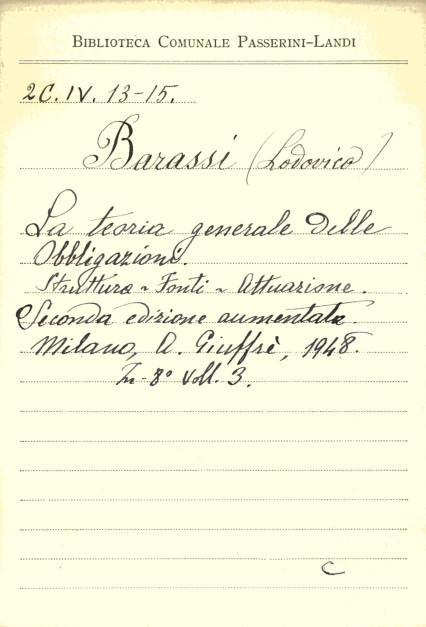 BIBLIOTECA COMUNALE PASSERINI-LANDI
2C. IV. 13-15.
Barassi (Lodovico)
La teoria generale delle
Obbligazioni.
Struttura - Fonti - Attuazione.
Seconda edizione aumentata.
Milano, A. Giuffrè, 1948.
In-8° Voll. 3.
C